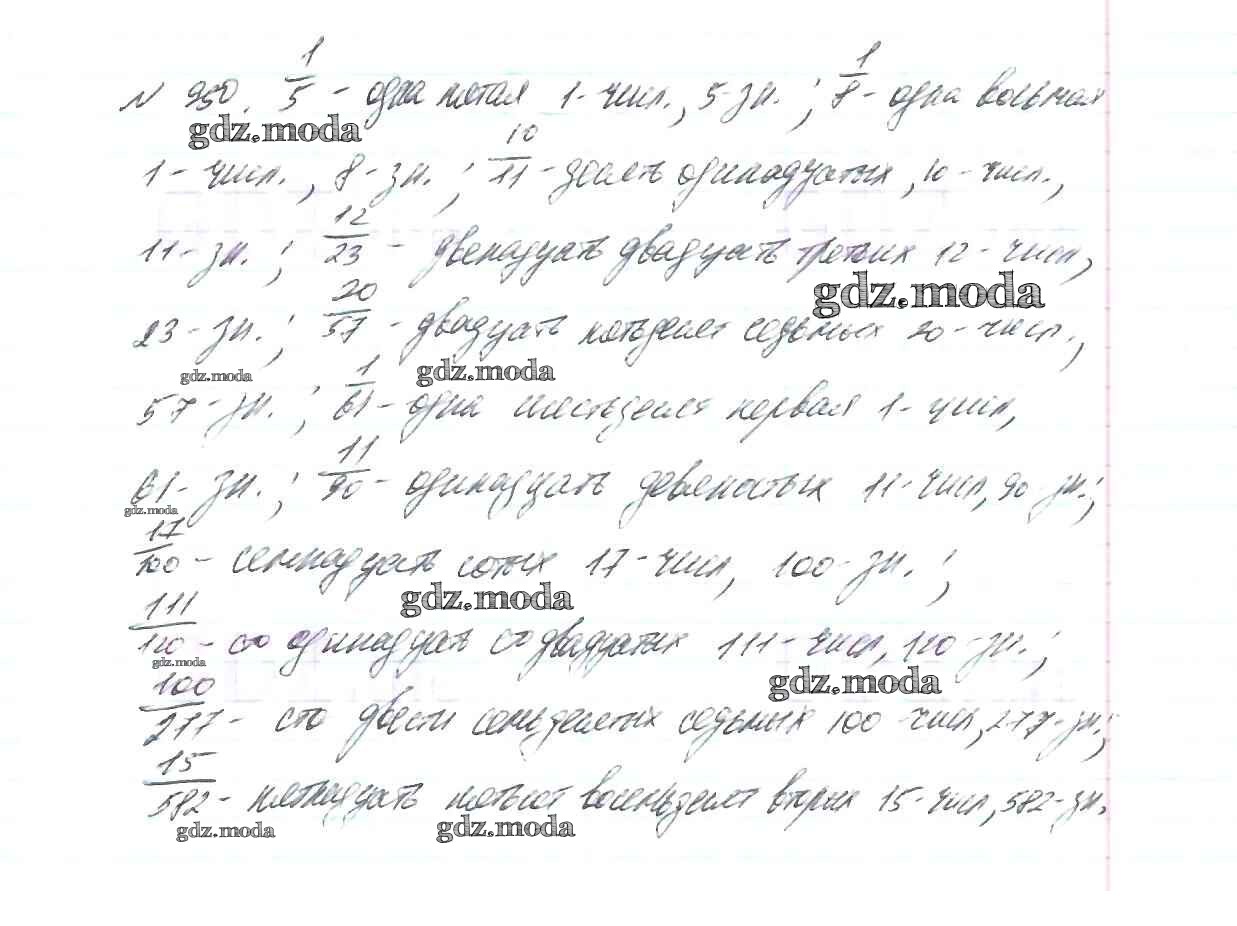 № 950. 1/5 - одна пятая 1-числ., 5-зн.; 1/8 - одна восьмая
gdz.moda
1 - числ., 8-зн.; 10/11 - десять одинадцатых, 10-числ.,
11-зн.; 12/23 - двенадцать двадцать третих 12-числ,
gdz.moda
23-зн.; 20/57 - двадцать пятьдесят седьмых 20-числ.,
gdz.moda gdz.moda
57-зн.; 1/61 - одна шестьдесят первая 1-числ,
61-зн.; 11/90 - одинадцать девяностых 11-числ, 90-зн.;
gdz.moda
17/100 - семнадцать сотых 17-числ, 100-зн.;
gdz.moda
111/120 - сто одинадцать стодвадцатих 111-числ, 120-зн.;
gdz.moda gdz.moda
100/277 - сто двести семьдесятых седьмых 100-числ, 277-зн.;
15/582 - пятнадцать пятьсот восемьдесят вторых 15-числ, 582-зн.
gdz.moda gdz.moda